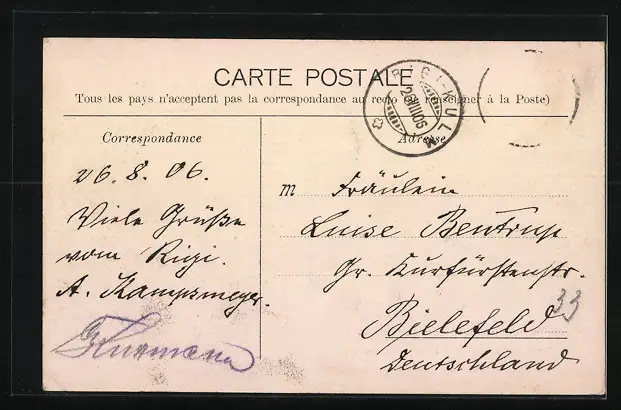 CARTE POSTALE
Tous les pays n'acceptent pas la correspondance au recto (se renseigner à la Poste)
RIGI-KULM
26 VIII 06
Correspondance
Adresse
26. 8. 06.
Viele Grüße
vom Rigi.
A. Kampsmeyer.
m Fräulein
Luise Bentrup
Gr. Kurfürstenstr.
33
Bielefeld
Deutschland